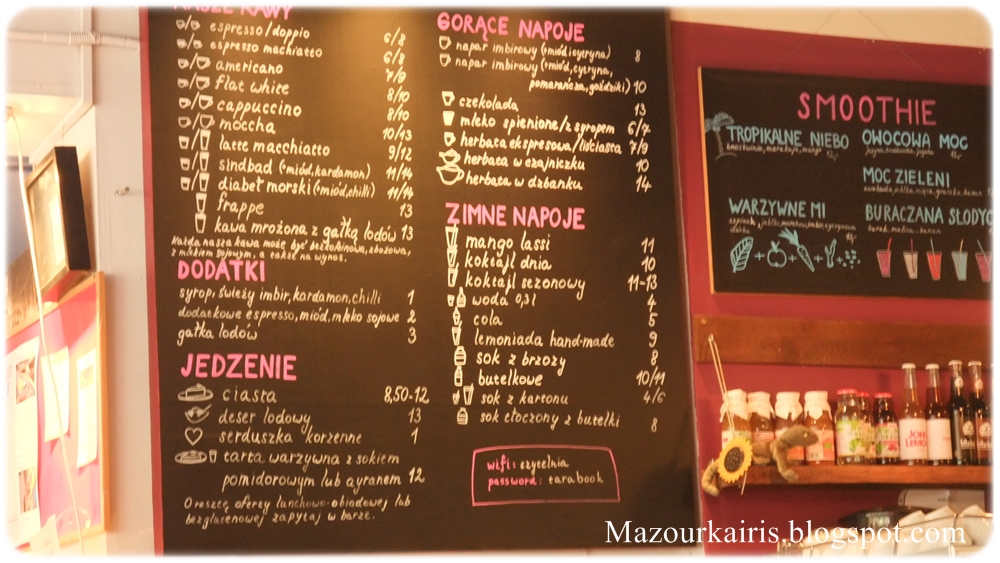 NASZE KAWY
espresso/doppio 6/8
espresso machiatto 6/8
americano 7/9
flat white 8/10
cappuccino 8/10
moccha 10/13
latte macchiatto 9/12
sindbad (+miód, kardamon) 11/14
diabeł morski (+miód, chilli) 11/14
frappe 13
kawa mrożona z gałką lodów 13
Każda nasza kawa może być bezkofeinowa, zbożowa,
z mlekiem sojowym, a także na wynos.
DODATKI
syrop, świeży imbir, kardamon, chilli 1
dodatkowe espresso, miód, mleko sojowe 2
gałka lodów 3
JEDZENIE
ciasta 8,50-12
deser lodowy 13
serduszka korzenne 1
tarta warzywna z sokiem
pomidorowym lub ayranem 12
O resztę oferty lunchowo-obiadowej lub
bezglutenowej zapytaj w barze.
GORĄCE NAPOJE
napar imbirowy (+miód i cytryna) 8
napar imbirowy (+miód, cytryna,
pomarańcza, goździki) 10
czekolada 13
mleko spienione/z syropem 6/7
herbata ekspresowa/liściasta 7/9
herbata w czajniczku 10
herbata w dzbanku 14
ZIMNE NAPOJE
mango lassi 11
koktajl dnia 10
koktajl sezonowy 11-13
woda 0,3l 4
cola 5
lemoniada hand-made 9
sok z brzozy 8
butelkowe 10/11
sok z kartonu 4/6
sok tłoczony z butelki 8
wifi: czytelnia
password: tarabook
SMOOTHIE
TROPIKALNE NIEBO
OWOCOWA MOC
MOC ZIELENI
WARZYWNE MI
BURACZANA SŁODYC
burak, malina, banan
JOHN
LEMON
Mazourkairis.blogspot.com